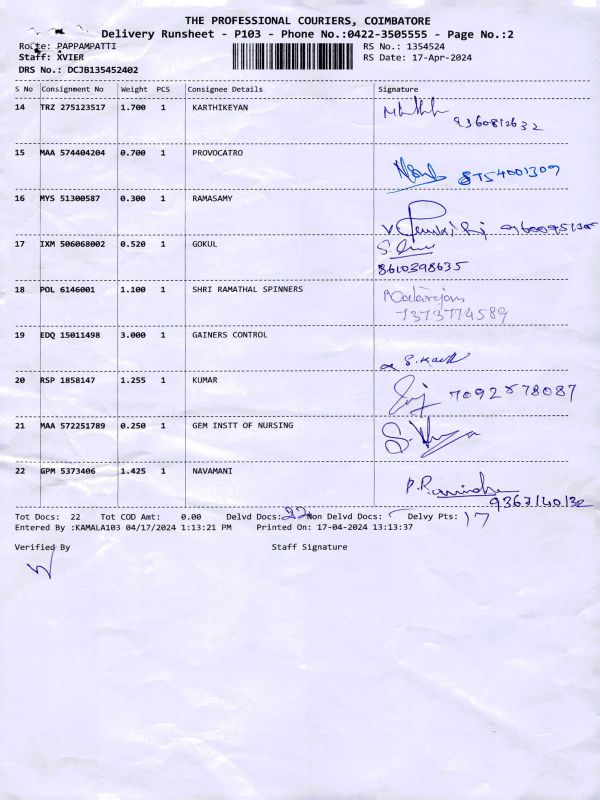 THE PROFESSIONAL COURIERS, COIMBATORE
Delivery Runsheet - P103 - Phone No.:0422-3505555 - Page No.:2
Route: PAPPAMPATTI RS No.: 1354524
Staff: XVIER RS Date: 17-Apr-2024
DRS No.: DCJB135452402
S No Consignment No Weight PCS Consignee Details Signature
14 TRZ 275123517 1.700 1 KARTHIKEYAN
9360812632
15 MAA 574404204 0.700 1 PROVOCATRO
8754001309
16 MYS 51300587 0.300 1 RAMASAMY
17 IXM 506068002 0.520 1 GOKUL
8610398635
18 POL 6146001 1.100 1 SHRI RAMATHAL SPINNERS
7373774589
19 EDQ 15011498 3.000 1 GAINERS CONTROL
20 RSP 1858147 1.255 1 KUMAR
7092878087
21 MAA 572251789 0.250 1 GEM INSTT OF NURSING
22 GPM 5373406 1.425 1 NAVAMANI
9367140132
Tot Docs: 22 Tot COD Amt: 0.00 Delvd Docs: 22 Non Delvd Docs: Delvy Pts: 17
Entered By :KAMALA103 04/17/2024 1:13:21 PM Printed On: 17-04-2024 13:13:37
Verified By Staff Signature